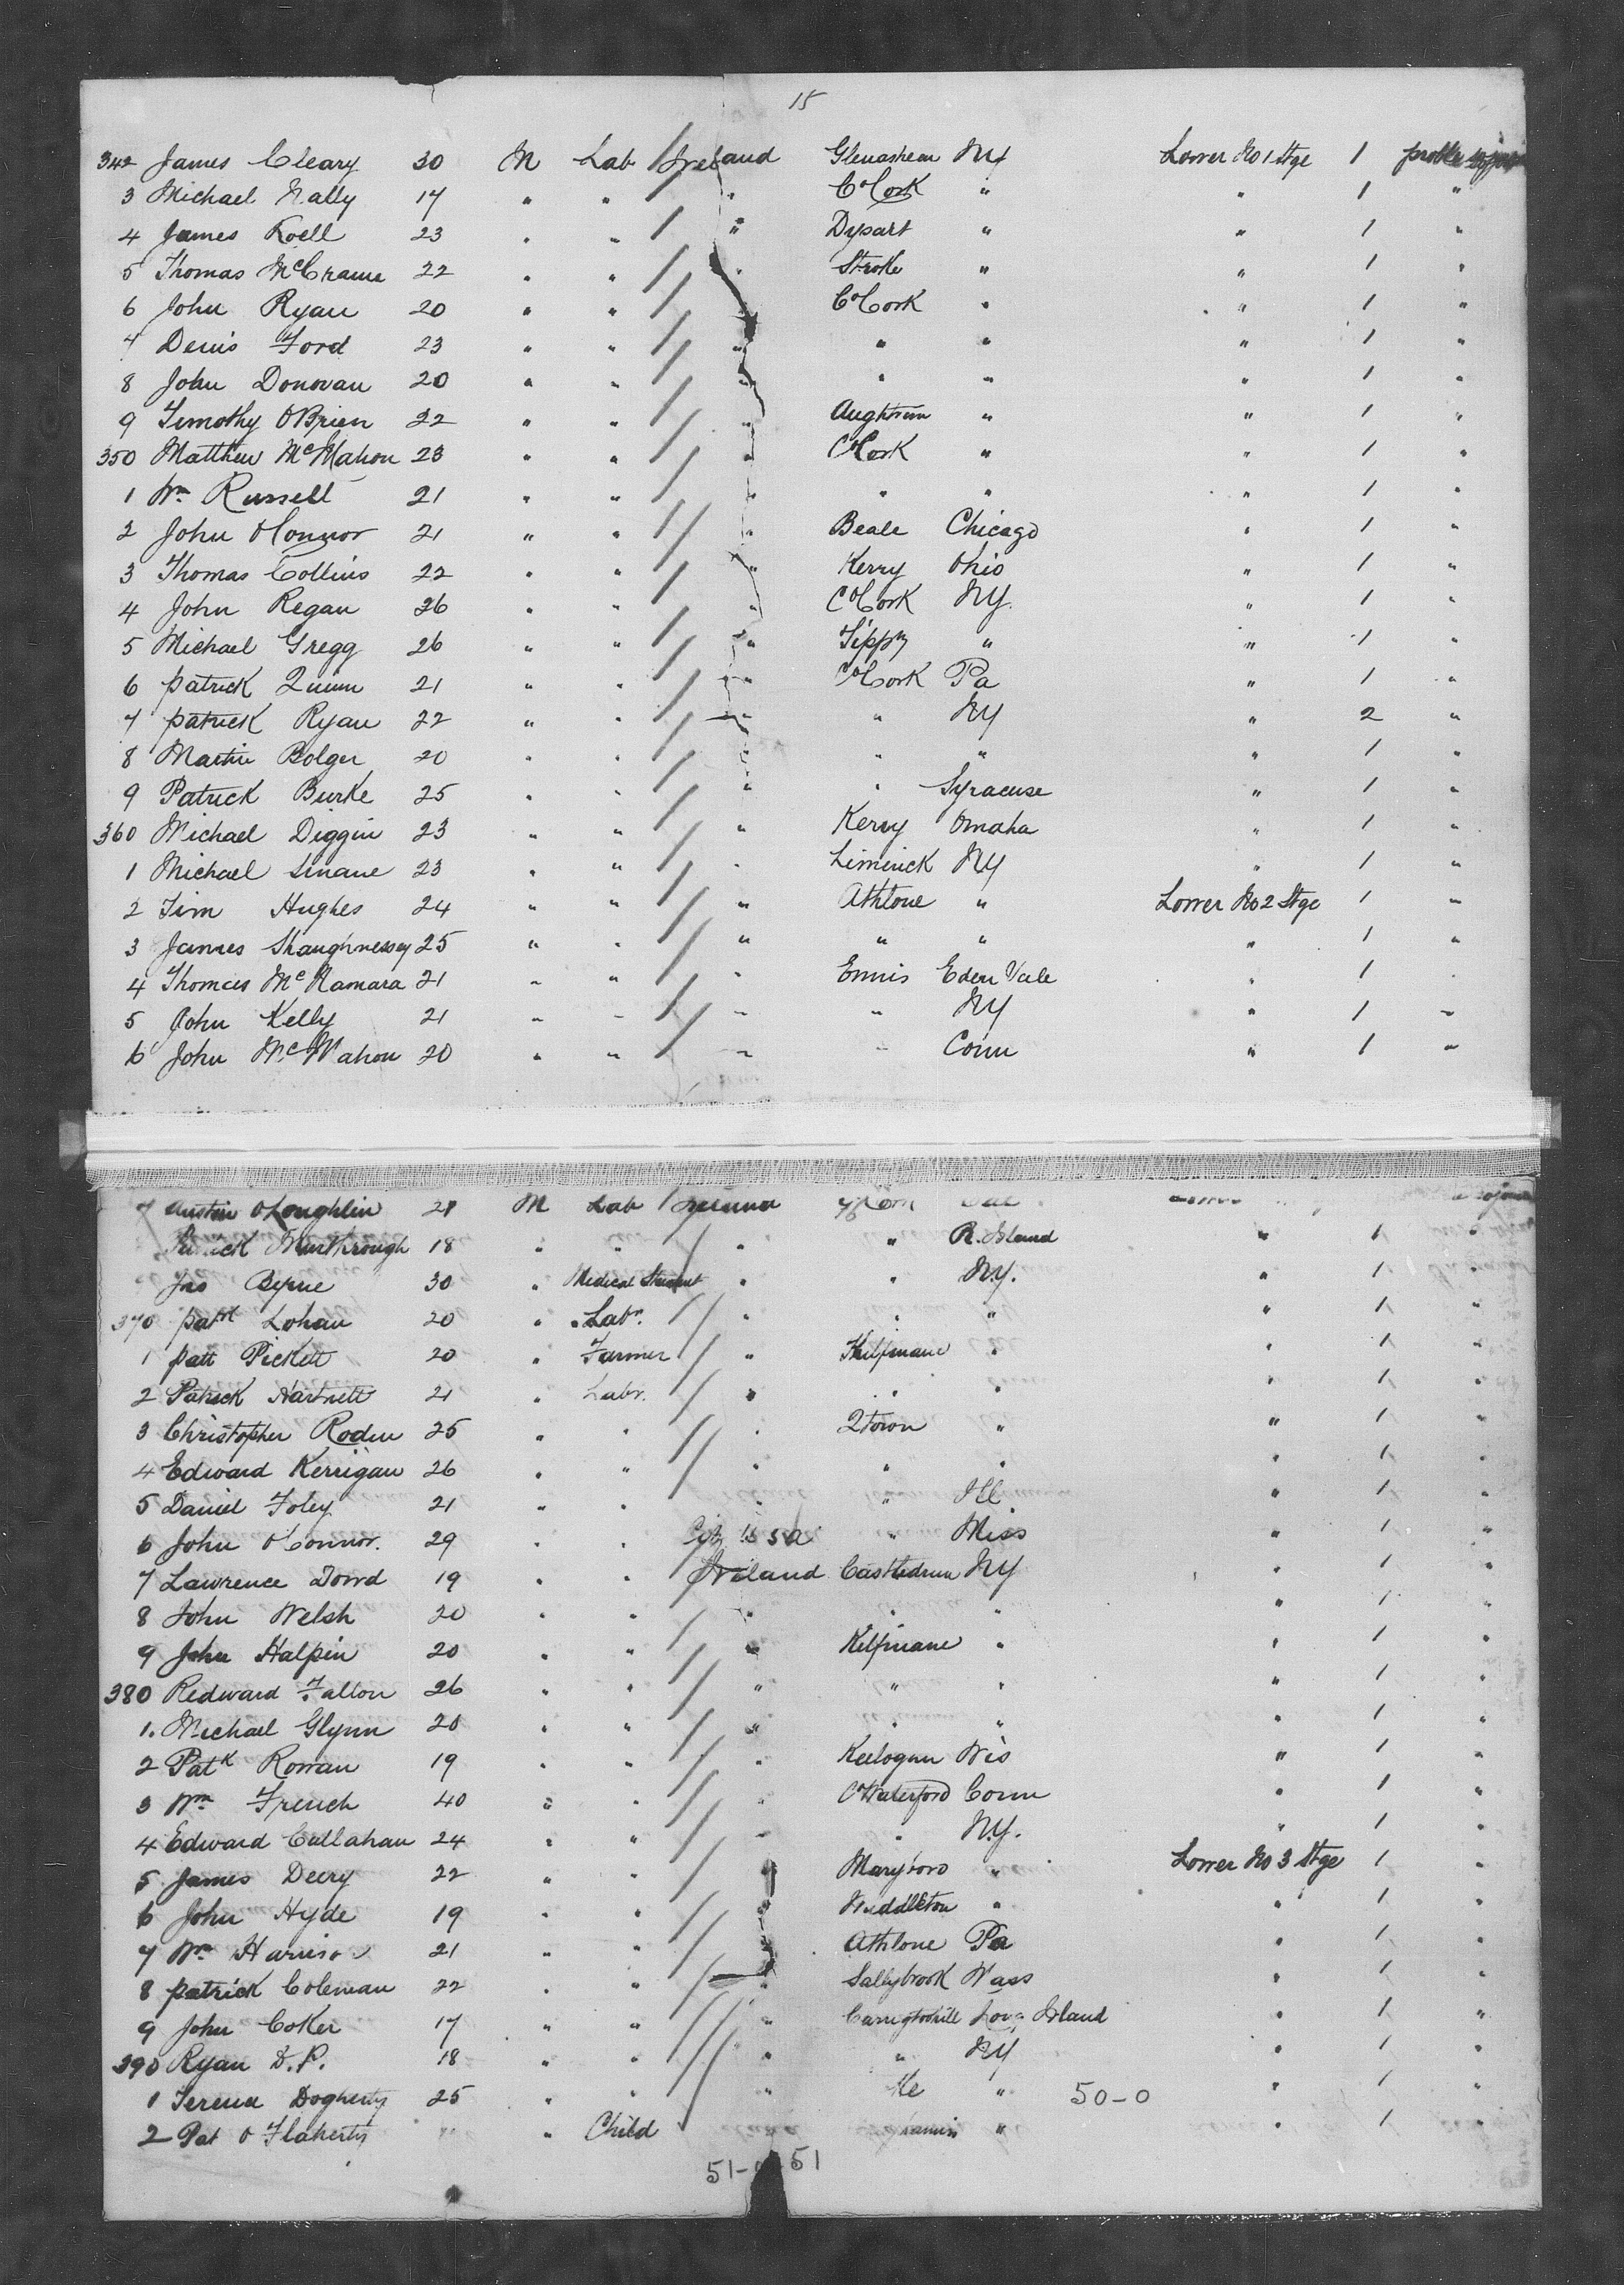 15
342 James Cleary 30 M Lab / Ireland NY Lower No 1 Stge 1
3 Michael Nally 17 " " / " Co Cork " " 1 "
4 James Roell 23 " " / " Dysart " " 1 "
5 Thomas 22 " " / " Stroke " " 1 "
6 John Ryan 20 " " / " Co Cork " " 1 "
7 Denis Ford 23 " " / " " " " 1 "
8 John Donovan 20 " " / " " " " 1 "
9 Timothy OBrien 22 " " / " Aughrim " " 1 "
350 Matthew McMahon 23 " " / " Co Cork " " 1 "
1 Wm Russell 21 " " / " " " " 1 "
2 John OConnor 21 " " / " Beale Chicago " 1 "
3 Thomas Collins 22 " " / " Kerry Ohio " 1 "
4 John Regan 26 " " / " Co Cork NY. " 1 "
5 Michael Gregg 26 " " / " Tippy " " 1 "
6 patrick Quinn 21 " " / " Co Cork Pa " 1 "
7 patrick Ryan 22 " " / " " NY " 2 "
8 Martin Bolger 20 " " / " " " " 1 "
9 Patrick Burke 25 " " / " " Syracuse " 1 "
360 Michael Diggin 23 " " / " Kerry Omaha " 1 "
1 Michael Linane 23 " " / " Limerick NY " 1 "
2 Tim Hughes 24 " " / " Athlone " Lower No 2 Stge 1 "
3 James Shaughnessy 25 " " / " " " " 1 "
4 Thomas McNamara 21 " " / " Ennis Eden Vale " 1 "
5 John Kelly 21 " " / " " NY " 1 "
6 John McMahon 20 " " / " " Conn " 1 "
7 Austin OLoughlin 21 M Lab / Ireland
Murthrough 18 " " / " " R. Island " 1 "
Jas Byrne 30 " Medical Student " " N.Y. " 1 "
370 patk Lohan 20 " Labr. / " " " " 1 "
1 patt Pickett 20 " Farmer / " Kilfinane " " 1 "
2 Patrick Hartnett 21 " Labr. / " " " " 1 "
3 Christopher Roden 25 " " / " Qtown " " 1 "
4 Edward Kerrigan 26 " " / " " " " 1 "
5 Daniel Foley 21 " " / " " Ill " 1 "
6 John OConnor. 29 " " U S a " Miss " 1 "
7 Lawrence Dowd 19 " " Ireland Castledrum NY " 1 "
8 John Welsh 20 " " / " " " " 1 "
9 John Halpin 20 " " / " Kilfinane " " 1 "
380 Redward Fallon 26 " " / " " " " 1 "
1. Michael Glynn 20 " " / " " " " 1 "
2 Patk Rowan 19 " " / " Wis " 1 "
3 Wm French 40 " " / " Co Waterford Conn " 1 "
4 Edward Callahan 24 " " / " " N.Y. " 1 "
5 James Deery 22 " " / " Maryboro " Lower No 3 Stge 1 "
6 John Hyde 19 " " / " Middleton " " 1 "
7 Wm 21 " " / " Athlone Pa " 1 "
8 patrick Coleman 22 " " / " Sallybrook Mass " 1 "
9 John Coker 17 " " / " Carrigtohill Long Island " 1 "
390 Ryan D. P. 18 " " / " " NY " 1 "
1 Dogherty 25 " " / " " 50-0 " 1 "
2 Pat O Flaherty " " Child " " 1 "
51- 51